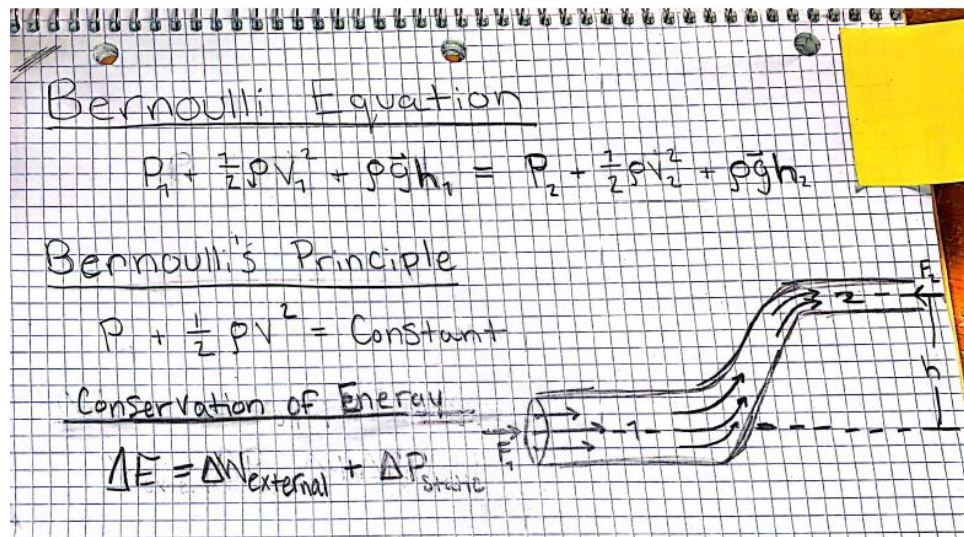 Bernoulli Equation
P₁ + ½ρV₁² + ρg⃗h₁ = P₂ + ½ρV₂² + ρg⃗h₂
Bernoulli's Principle
P + ½ρV² = Constant
Conservation of Energy
ΔE = ΔW external + ΔP static
F₂
2
h
1
F₁